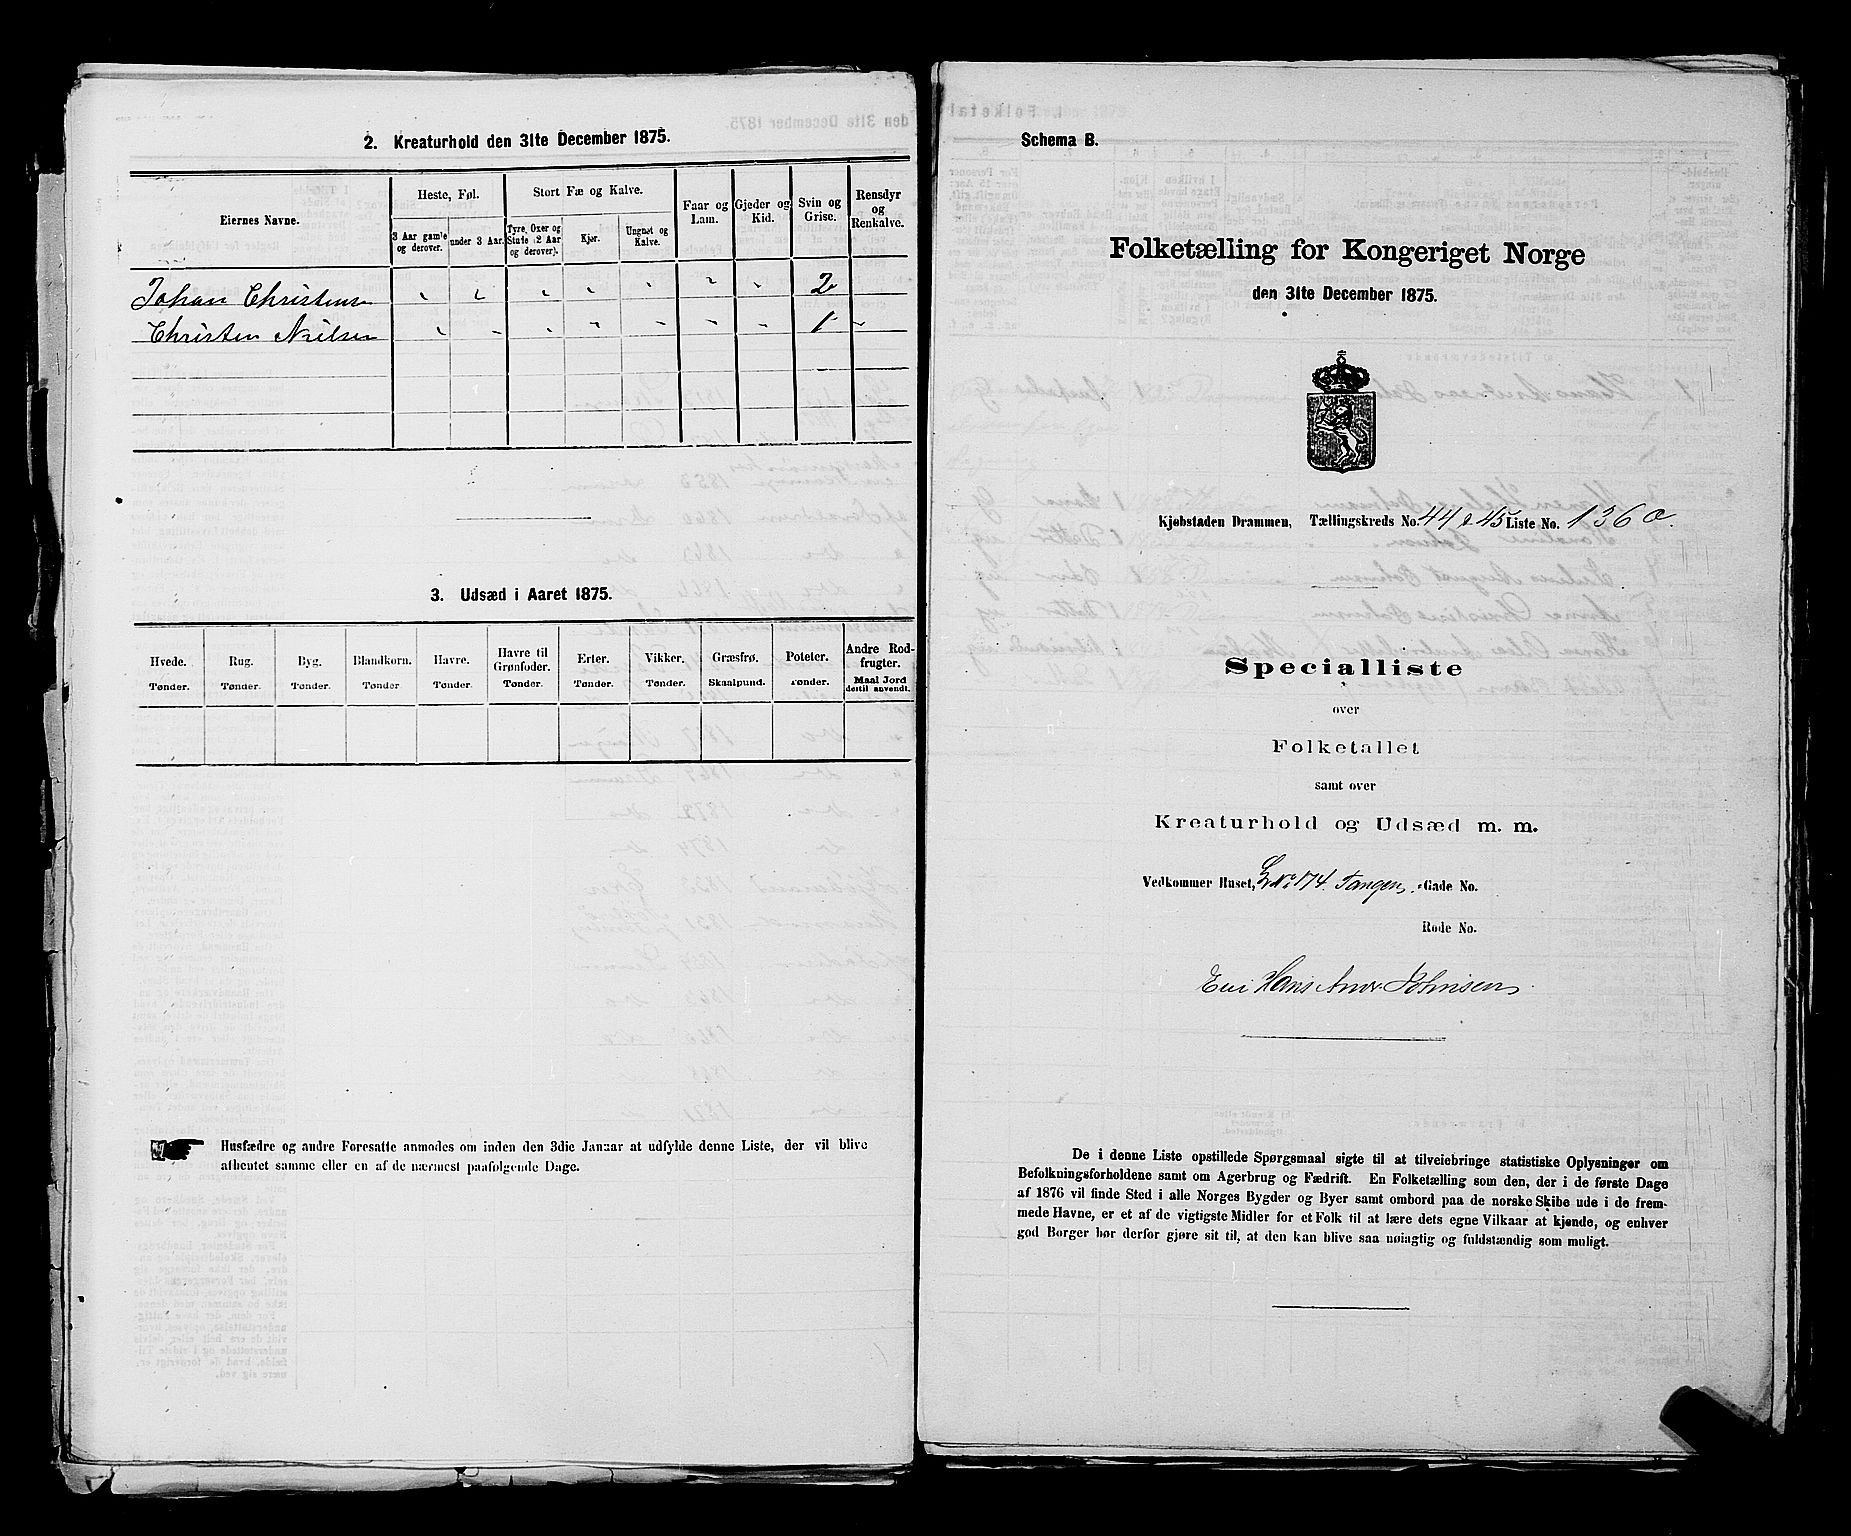 2. Kreaturhold den 31te December 1875.
Eiernes Navne.
Heste, Føl.
Stort Fæ og Kalve.
Faar og Lam.
Gjeder og Kid.
Svin og Grise.
Rensdyr og Renkalve.
3 Aar gamle og derover.
under 3 Aar.
Tyre, Oxer og Stude (2 Aar og derover).
Kjør.
Ungnøt og Kalve.
Johan Christens 2
Christen Nielsen 1
3. Udsæd i Aaret 1875.
Hvede. Rug. Byg. Blandkorn. Havre. Havre til Grønfoder. Erter. Vikker. Græsfrø. Poteter. Andre Rodfrugter.
Tønder. Tønder. Tønder. Tønder Tønder. Tønder. Tønder. Tønder. Skaalpund. Tønder. Maal Jord dertil anvendt.
Husfædre og andre Foresatte anmodes om inden den 3die Januar at udfylde denne Liste, der vil blive
afhentet samme eller en af de nærmest paafølgende Dage.
Schema B.
Folketælling for Kongeriget Norge
den 31te December 1875.
Kjøbstaden Drammen, Tællingskreds No. 44 & 45 Liste No. 136 a.
Specialliste
over
Folketallet
samt over
Kreaturhold og Udsæd m. m.
Vedkommer Huset, No 174. Tangen. Gade No.
Rode No.
Eier Hans Andr Johnsen
De i denne Liste opstillede Spørgsmaal sigte til at tilveiebringe statistiske Oplysninger om
Befolkningsforholdene samt om Agerbrug og Fædrift. En Folketælling som den, der i de første Dage
af 1876 vil finde Sted i alle Norges Bygder og Byer samt ombord paa de norske Skibe ude i de frem-
mede Havne, er et af de vigtigste Midler for et Folk til at lære dets egne Vilkaar at kjende, og enhver
god Borger bør derfor gjøre sit til, at den kan blive saa nøiagtig og fuldstændig som muligt.